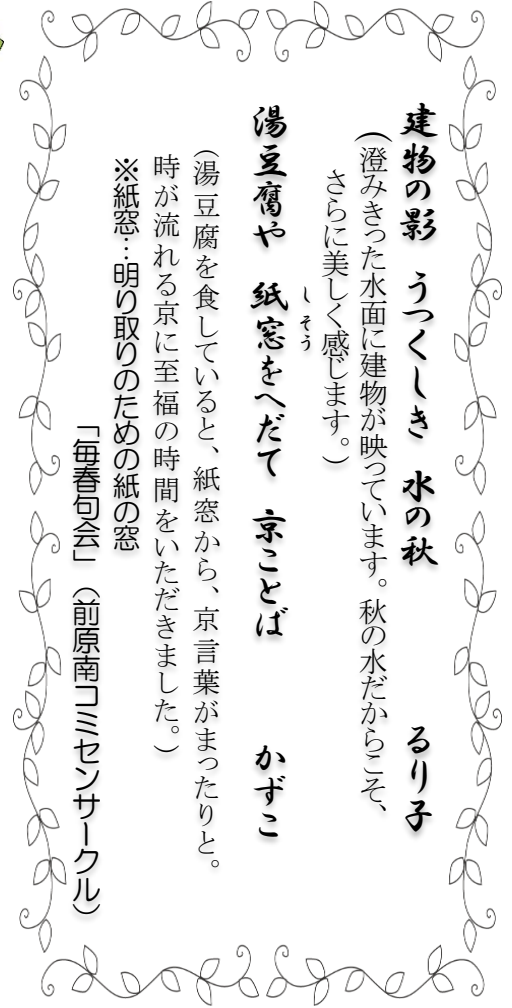 建物の影　うつくしき　水の秋　るり子
（澄みきった水面に建物が映っています。秋の水だからこそ、
さらに美しく感じます。）
しそう
湯豆腐や　紙窓をへだて　京ことば　かずこ
（湯豆腐を食していると、紙窓から、京言葉がまったりと。
時が流れる京に至福の時間をいただきました。）
※紙窓…明り取りのための紙の窓
「毎春句会」（前原南コミセンサークル）